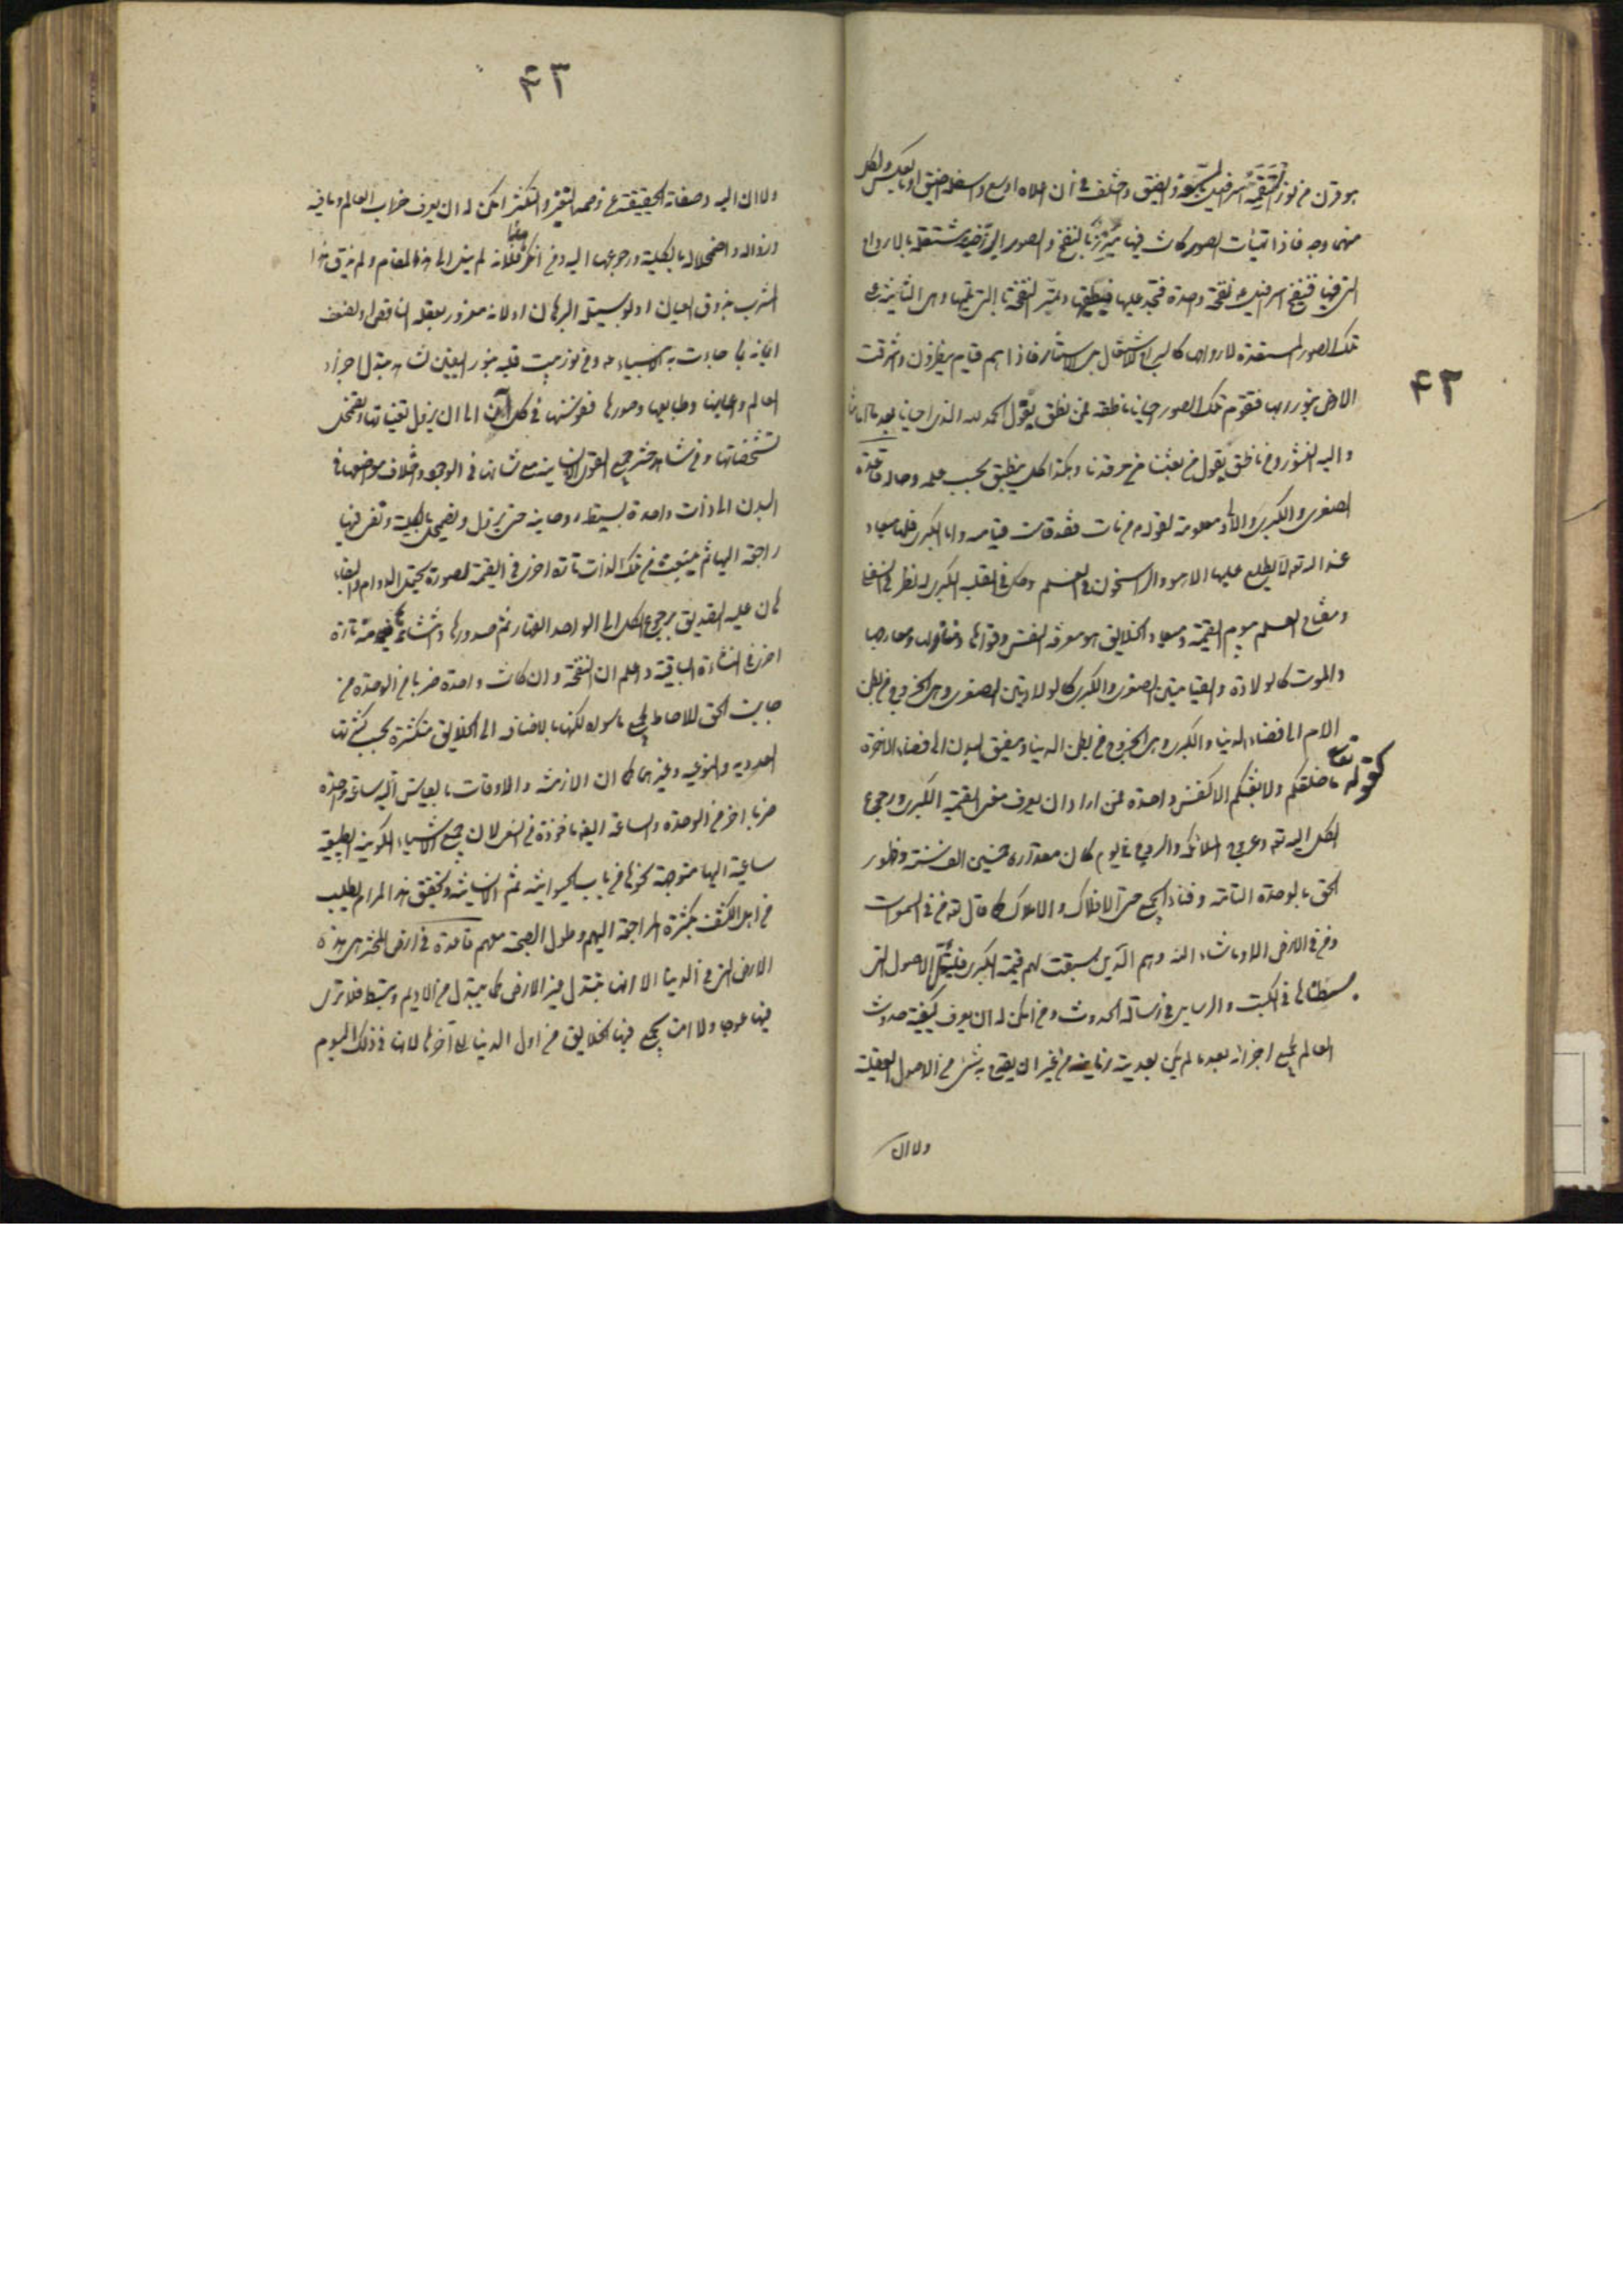 ۴۳
هو قرن من نور التقمه اسرافيل السعة والضيق واختلف في ان اعلاه اوسع واسفله اضيق او بالعكس ولكل
منهما وجه فاذا تهيات الصور كانت فيها بالنفخ والصور البرزخية مشتعلة بالارواح
التي فيها فينفخ اسرافيل ع نفخة واحدة فتمر عليها فيطفيها وتمر النفخة التي تليها وهي الثانية على
تلك الصور المستعدة لارواحها كالسراج للاشتعال هي الاستنارة فاذا هم قيام ينظرون واشرقت
الارض بنور ربها فتقوم تلك الصور احياء ناطقة فمن ناطق يقول الحمد لله الذي احيانا بعد ما اماتنا
واليه النشور ومن ناطق يقول من بعثنا من مرقدنا وهكذا كل ينطق بحسب علمه وحاله قاعدة
الصغرى والكبرى والاولى معلومة لقوله من مات فقد قامت قيامته واما الكبرى فلها ميعاد
عند الله تع لا يطلع عليها الا هو والراسخون في العلم
ومفتاح العلم بيوم القيمة ومعاد الخلايق هو معرفة النفس وقواها ومنازلها ومعارجها
والموت كالولادة والقيامتين الصغرى والكبرى كالولادتين الصغرى وهي الخروج من بطن
الام الى فضاء الدنيا والكبرى وهي الخروج من بطن الدنيا ومضيق البدن الى فضاء الاخرة
كقوله تع ما خلقكم ولا بعثكم الا كنفس واحدة فمن اراد ان يعرف معنى القيمة الكبرى ورجوع
الكل اليه تع وعروج الملائكة والروح في يوم كان مقداره خمسين الف سنة وظهور
الحق بالوحدة التامة وفناء الجميع حتى الافلاك والاملاك كما قال تع من في السموات
ومن في الارض الا ما شاء الله وهم الذين سبقت لهم قيمة الكبرى الاصول التي
بسطناها في الكتب والرسايل في رسالة الحدوث ومن امكن له ان يعرف كيفية حدوث
العالم بجميع اجزائه بعد ما لم يكن بعدية زمانية من غير ان يقدح به شيء من الاصول العقلية
ولا ان
۴۳
ولا ان اليه وصفاته الحقيقية عن وصمة التغير والتكثر امكن له ان يعرف خراب العالم وما فيه
وزواله واضمحلاله بالكلية ورجوعها اليه ومن انكر هذا فلانه لم يصل الى هذا المقام ولم يذق هذا
المشرب بذوق العيان او بوسيلة البرهان او لانه مغرور بعقله الناقص او لضعف
ايمانه بما جاءت به الانبياء ع ومن نور بيت قلبه بنور اليقين شاهد تبدل اجزاء
العالم واعيانها وطبايعها وصورها ونفوسها في كل آن الى ان يزول تعيناتها ويضمحل
تشخصاتها ومن شاهد حشر جميع القوى الانسانية مع تباينها في الوجود واختلاف مواضعها في
البدن الى ذات واحدة بسيطة روحانية حتى يزول ويضمحل بالكلية وتفنى فيها
راجعة اليها ثم ينبعث من تلك الذات تارة اخرى في القيمة بصورة يحتمل الدوام والبقاء
هان عليه التصديق برجوع الكل الى الواحد القهار ثم صدورها ونشاتها منه تارة
اخرى في النشاة الباقية واعلم ان النفخة وان كانت واحدة ضربا من الوحدة من
جانب الحق للاحاطة بجميع ما سواه لكنها بالاضافة الى الخلايق متكثرة بحسب كثرتها
العددية والنوعية وغيرهما كما ان الازمنة والاوقات بالقياس اليه ساعة واحدة
ضربا اخر من الوحدة والساعة ايضا ماخوذة من السعي لان جميع الاشياء الكونية الطبيعية
ساعية اليها متوجهة نحوها من باب الحيوانية ثم الانسانية وتحقيق هذا المرام يطلب
من اهل الكشف بكثرة المراجعة اليهم وطول الصحبة معهم قاعدة في ارض المحشر هي هذه
الارض التي في الدنيا الا انها تتبدل غير الارض كما يتبدل من الاديم وتبسط فلا ترى
فيها عوجا ولا امتا يجمع فيها الخلايق من اول الدنيا الى آخرها لانها في ذلك اليوم